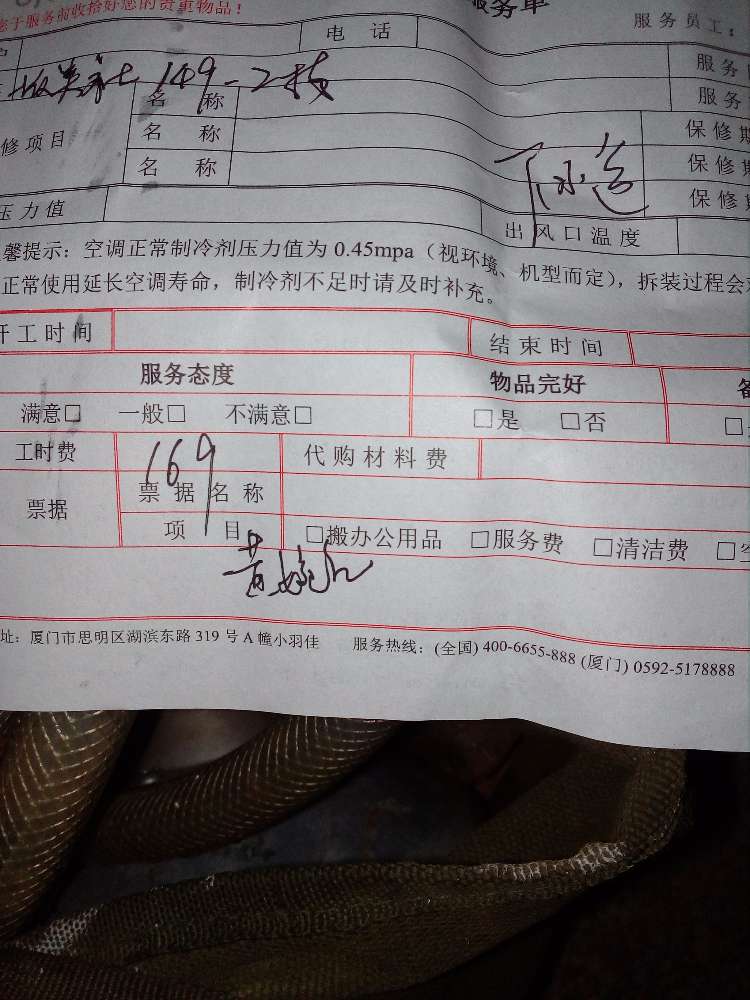 您于服务前收拾好您的贵重物品！
服务单
服务员工：
电 话
服务
149-2
名 称
服务
修项目
名 称
保修期
名 称
下水道
保修期
保修期
压力值
出风口温度
馨提示：空调正常制冷剂压力值为 0.45mpa（视环境、机型而定），拆装过程会
正常使用延长空调寿命，制冷剂不足时请及时补充。
开工时间
结束时间
服务态度
物品完好
满意□ 一般□ 不满意□
□是 □否
工时费
169
代购材料费
票据
票据名称
项 目
□搬办公用品 □服务费 □清洁费 □
址：厦门市思明区湖滨东路 319 号 A 幢小羽佳 服务热线：(全国) 400-6655-888 (厦门) 0592-5178888